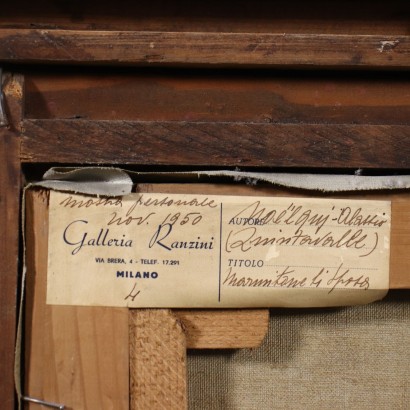 mostra personale
nov. 1950
Galleria Ranzini
VIA BRERA, 4 - TELEF. 17.291
MILANO
4
AUTORE Noëlqui - Alassio
(Quintavalle)
TITOLO